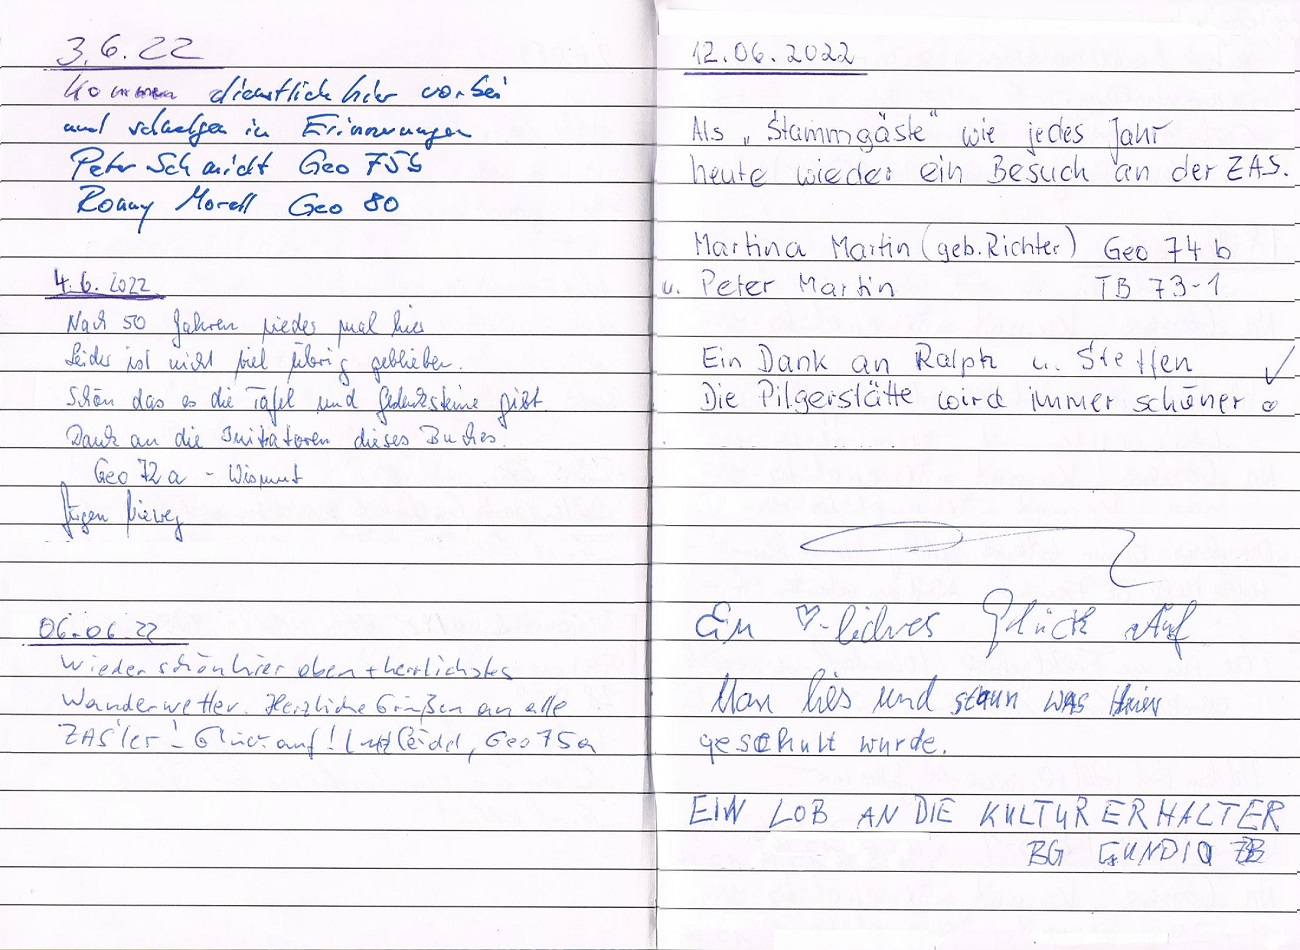 3.6.22
Kommen dienstlich hier vorbei
und schwelgen in Erinnerungen
Peter Schmidt Geo 75b
Ronny Morell Geo 80
4.6.2022
Nach 50 Jahren wieder mal hier
Leider ist nicht viel übrig geblieben.
Schön das es die Tafel und Gedenksteine gibt.
Dank an die Initiatoren dieses Buches.
Geo 72a - Wismut
Jürgen
06.06.22
Wieder schön hier oben + herrlichstes
Wanderwetter. Herzliche Grüßen an alle
ZAS'ler! Glück auf! Geo 75a
12.06.2022
Als „Stammgäste“ wie jedes Jahr
heute wieder ein Besuch an der ZAS.
Martina Martin (geb. Richter) Geo 74b
u. Peter Martin TB 73-1
Ein Dank an Ralph u. Steffen ✓
Die Pilgerstätte wird immer schöner
Ein ♡-liches Glück Auf
Man lies und staun was Hier
geschult wurde.
EIN LOB AN DIE KULTURERHALTER
BG